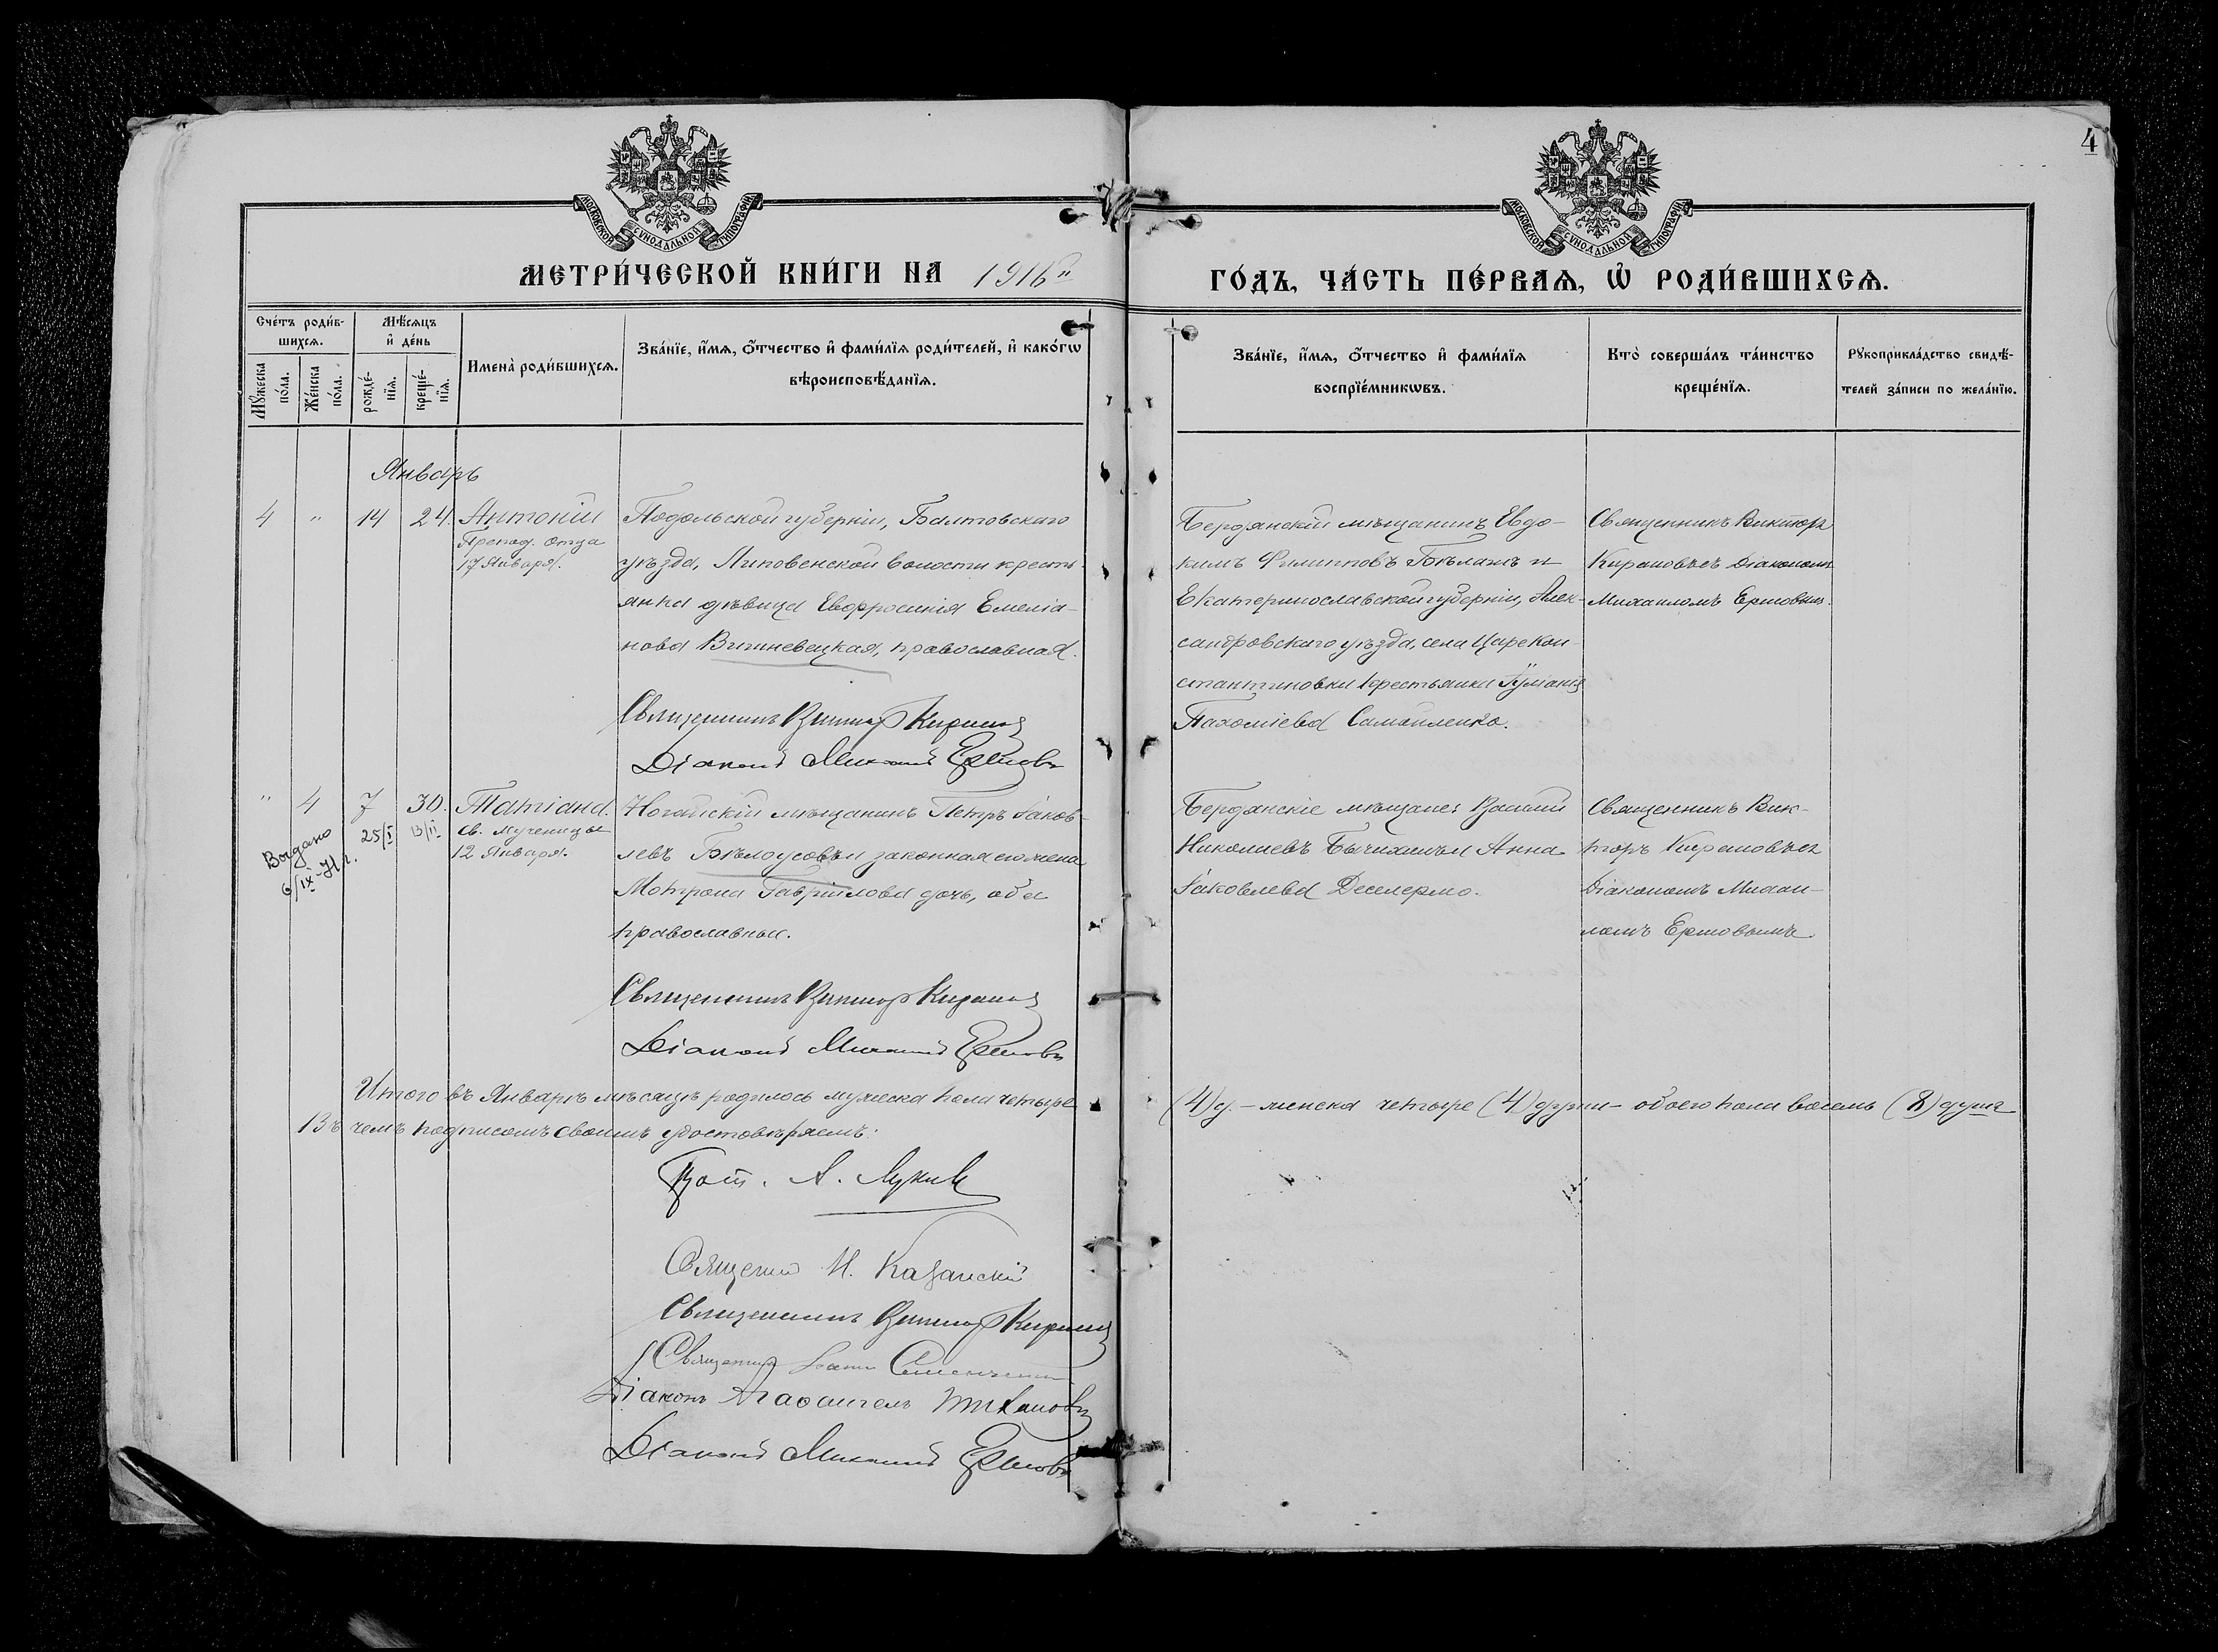 4
МОСКОВСКОЙ СѴНОДАЛЬНОЙ ТИПОГРАФІИ
МОСКОВСКОЙ СѴНОДАЛЬНОЙ ТИПОГРАФІИ
МЕТРИ́ЧЕСКОЙ КНИ́ГИ НА 1916й
ГО́ДЪ, ЧА́СТЬ ПЕ́РВАѦ, Ѡ҆ РОДИ́ВШИХСѦ.
Сче́тъ роди́в-
шихсѧ.
Мꙋ́жеска
по́ла.
Же́нска
по́ла.
Мѣ́сѧцъ
и҆ де́нь
рожде́-
нїѧ.
креще́-
нїѧ.
Имена̀ роди́вшихсѧ.
Зва́нїе, и҆́мѧ, ѻ҆́тчество и҆ фами́лїѧ роди́телей, и҆ како́гѡ
вѣроисповѣ́данїѧ.
Зва́нїе, и҆́мѧ, ѻ҆́тчество и҆ фами́лїѧ
воспрїе́мникѡвъ.
Кто̀ соверша́лъ та́инство
креще́нїѧ.
Рꙋкоприкла́дство свидѣ́-
телей за́писи по жела́нїю.
Январь
4 " 14 24. Антоній
Препод. отца
17 Января.
Подольской губерніи, Балтовскаго
уѣзда, Липовенской волости кресть-
янка дѣвица Евфросинія Емеліа-
нова Вишневецкая, православная.
Священникъ Викторъ Кирановъ
Діаконъ Михаилъ Ершовъ
Бердянскій мѣщанинъ Евдо-
кимъ Филипповъ и
Екатеринославской губерніи, Алек-
сандровскаго уѣзда, села Царекон-
стантиновки крестьянка Іуліанія
Пахоміева Самойленко.
Священникъ Викторъ
Кирановъ съ Діакономъ
Михаиломъ Ершовымъ.
" 4 7 30. Татіана.
25/I 13/II
св. мученицы
12 Января.
6/IX-
Ногайскій мѣщанинъ Петръ Іаков-
левъ Бѣлоусовъ и законная его жена
Мотрона Гавріилова дочь, оба
православные.
Священникъ Викторъ Кирановъ
Діаконъ Михаилъ Ершовъ
Бердянскіе мѣщане: Василій
Николаевъ и Анна
Іаковлева
Священникъ Вик-
торъ Кирановъ съ
Діакономъ Михаи-
ломъ Ершовымъ.
Итого въ Январѣ мѣсяцѣ родилось мужеска пола четыре
(4) д. - женска четыре (4) души - обоего пола восемь (8) душъ
Въ чемъ подписомъ своимъ удостовѣряемъ:
Прот. А.
Священникъ Н. Казанскій
Священникъ Викторъ Кирановъ
Священникъ
Діаконъ Агаѳангелъ Тихановъ
Діаконъ Михаилъ Ершовъ